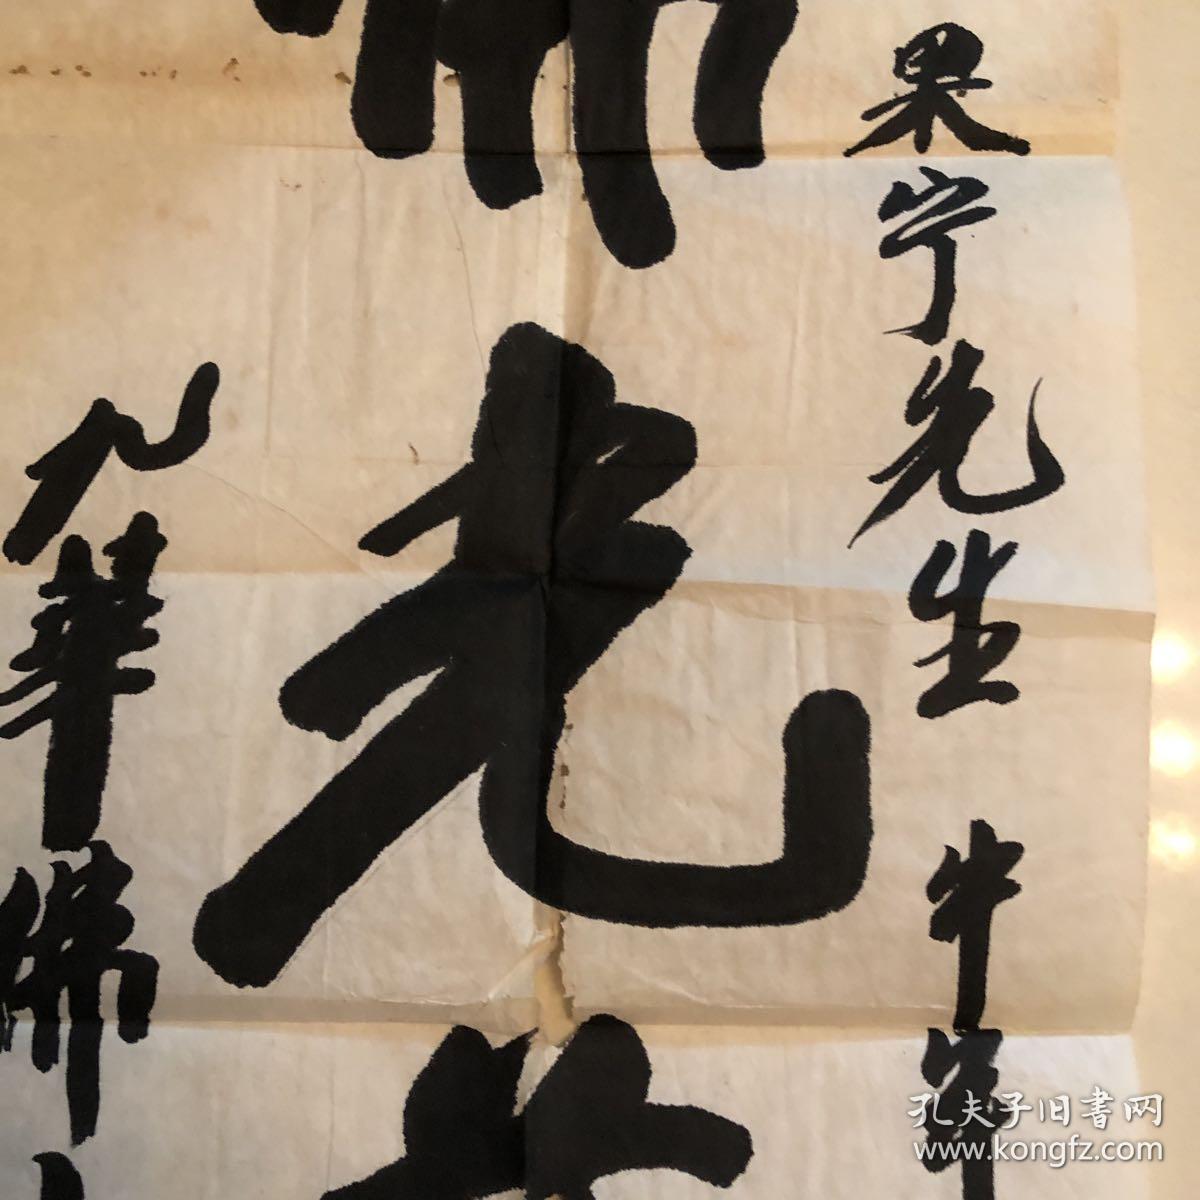 果宁先生 牛年
佛光
九華佛
孔夫子旧書网
www.kongfz.com